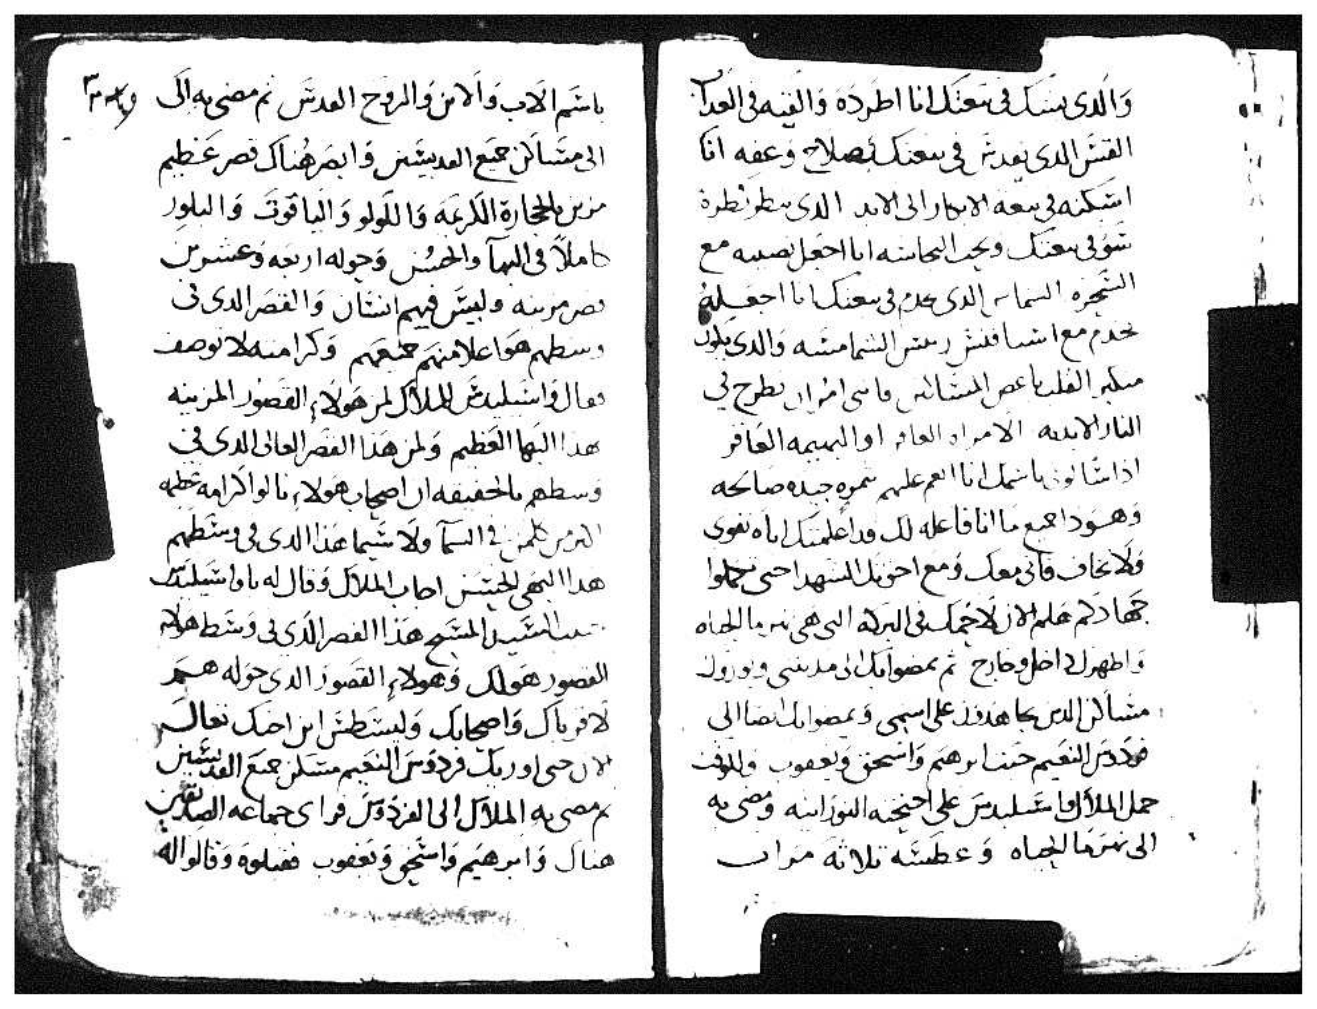 والدى يشك فى بيعتك انا اطرده والقيه فى العداب
القس الدى يقدس فى بيعتك بصلاح وعفه انا
اسكنه فى بيعه الابكار الى الابد الدى ينظر نظرة
سو فى بيعتك ويحب النجاسه انا اجعل نصيبه مع
الدى يخدم فى بيعتك انا اجعله
يخدم مع اسطفانس رييس الشمامسه والدى يكون
متكبر القلب المساكين امر ان يطرح فى
النار الابديه الامراه العاقر او البهيمه العاقر
ادا سالون باسمك انا انعم عليهم بثمره جيده صالحه
وهودا جميع ما انا فاعله لك قد اعلمتك اياه تقوى
ولا تخاف فانى معك ومع اخوتك الشهدا حتى تكملوا
جهادكم هلم الان لاحمك فى البركه التى هى نهر ما الحياه
واطهرك داخل وخارج ثم يمضوا بك الى مدينتى وتورك
مساكن الدين يجاهدون على اسمى ويمضوا بك ايضا الى
فردوس النعيم حيث ابرهيم واسحق ويعقوب وللوقت
حمل الملاك واسيليدس على اجنحته النورانيه ومضى به
الى نهر ما الحياه وغطسه ثلاثة مرات
باسم الاب والابن والروح القدس ثم مضى به الى
الى مساكن جميع القديسين وابصر هناك قصر عظيم
مزين بالحجارة الكريمه واللولو والياقوت والبلور
كاملا فى البها والحسن وحوله اربعه وعشرين
قصر مزينه وليس فيهم انسان والقصر الدى فى
وسطهم هو اعلا منهم جميعهم وكرامته لا توصف
فقال واسيليدس للملاك لمن هولاء القصور المزينه
هدا البها العظيم ولمن هدا القصر العالى الدى فى
وسطهم بالحقيقه ان اصحاب هولاء نالوا كرامه عظيمه
اكثر من كلمن فى السما ولا سيما هدا الدى فى وسطهم
هدا البهى الحسن اجاب الملاك وقال له يا واسيليدس
السيد المسيح هدا القصر الدى فى وسط هولاء
القصور هو لك وهولاء القصور الدى حوله هم
لاقرباك واصحابك وليسطس ابن اختك تعال
الان حتى اوريك فردوس النعيم مسكن جميع القديسين
ثم مضى به الملاك الى الفردوس فراى جماعه الصديقين
هناك وابرهيم واسحق ويعقوب فقبلوه وقالوا له